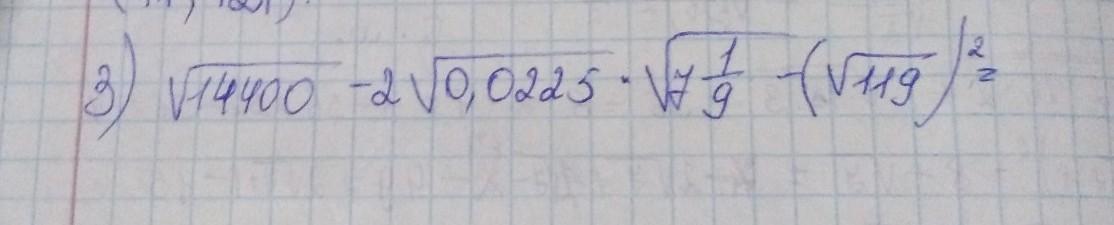 3) √14400 - 2√0,0225 · √7 1/9 - (√119)² =